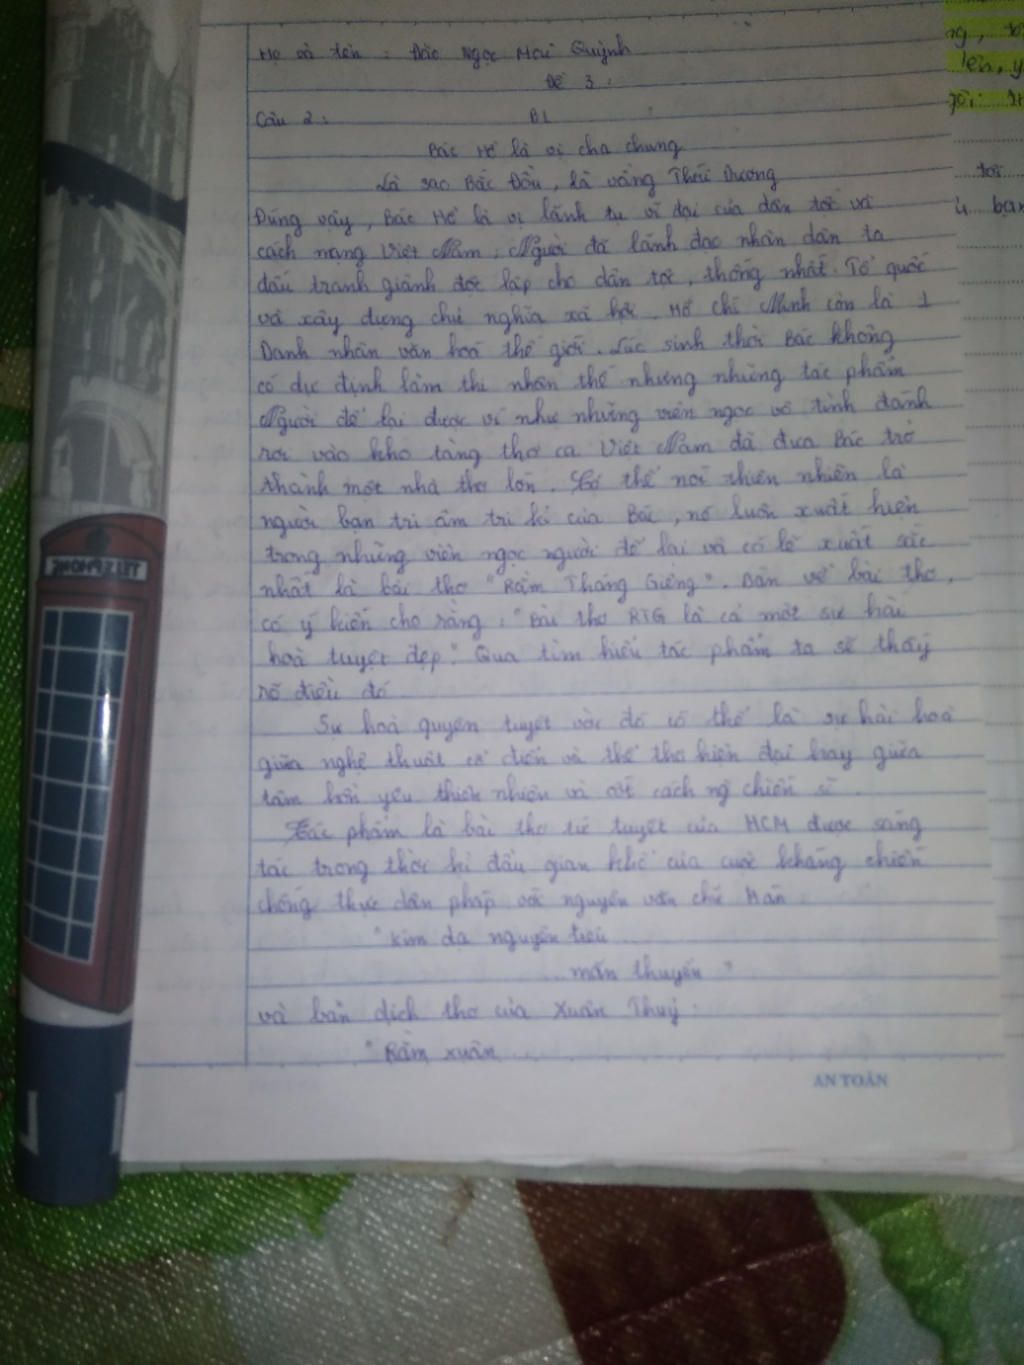 Họ và tên : Đào Ngọc Mai Quỳnh
Đề 3 :
Câu 2 : BL
Bác Hồ là vị cha chung
Là sao Bắc Đẩu, là vầng Thái Dương
Đúng vậy, Bác Hồ là vị lãnh tụ vĩ đại của dân tộc và
cách mạng Việt Nam. Người đã lãnh đạo nhân dân ta
đấu tranh giành độc lập cho dân tộc, thống nhất Tổ quốc
và xây dựng chủ nghĩa xã hội. Hồ Chí Minh còn là 1
Danh nhân văn hoá thế giới. Lúc sinh thời Bác không
có dự định làm thi nhân thế nhưng những tác phẩm
Người để lại được ví như những viên ngọc vô tình đánh
rơi vào kho tàng thơ ca Việt Nam đã đưa Bác trở
thành một nhà thơ lớn. Có thể nói thiên nhiên là
người bạn tri âm tri kỉ của Bác, nó luôn xuất hiện
trong những viên ngọc người để lại và có lẽ xuất sắc
nhất là bài thơ "Rằm Tháng Giêng". Bàn về bài thơ,
có ý kiến cho rằng : "Bài thơ RTG là cả một sự hài
hoà tuyệt đẹp." Qua tìm hiểu tác phẩm ta sẽ thấy
rõ điều đó.
Sự hoà quyện tuyệt vời đó có thể là sự hài hoà
giữa nghệ thuật cổ điển và thể thơ hiện đại hay giữa
tâm hồn yêu thiên nhiên và cốt cách ng chiến sĩ.
Tác phẩm là bài thơ tứ tuyệt của HCM được sáng
tác trong thời kì đầu gian khổ của cuộc kháng chiến
chống thực dân pháp với nguyên văn chữ Hán
"Kim dạ nguyên tiêu ...
... mãn thuyền"
và bản dịch thơ của Xuân Thuỷ.
"Rằm xuân ...
AN TOÀN
TELEPHONE